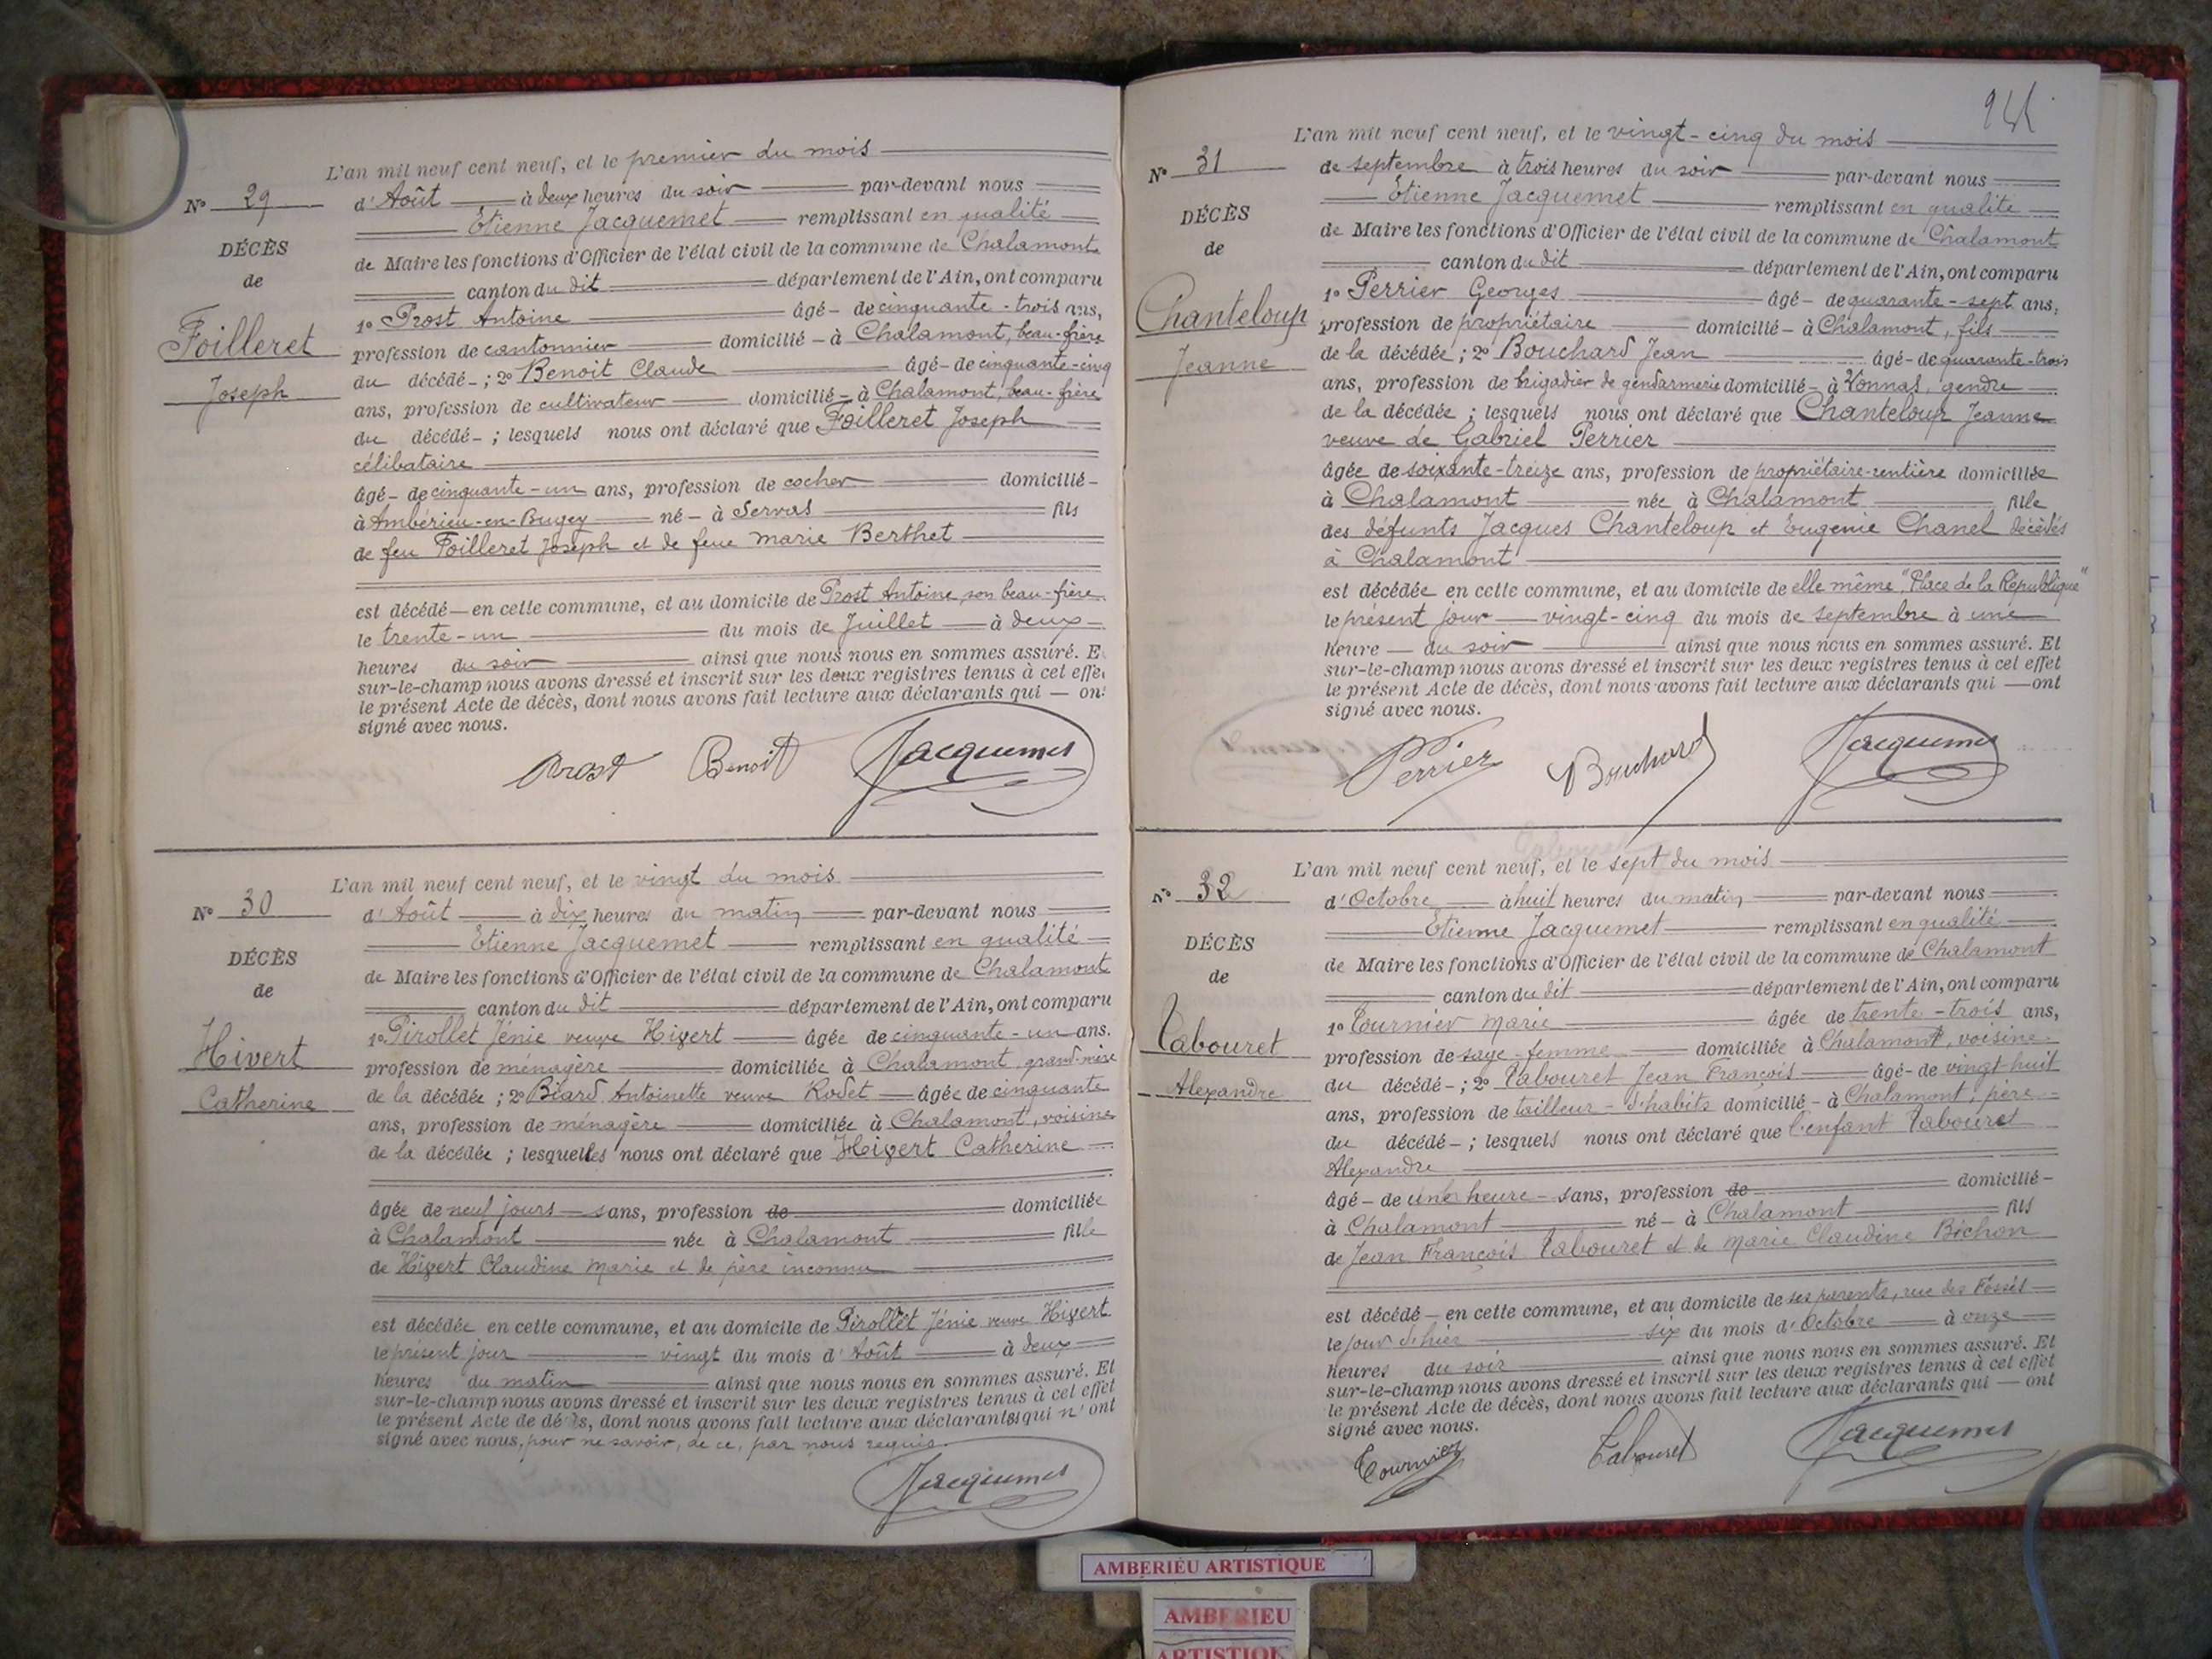 L'an mil neuf cent neuf, et le premier du mois
N° 29
d'Août à deux heures du soir par-devant nous
Etienne Jacquemet remplissant en qualité
DÉCÈS
de Maire les fonctions d'Officier de l'état civil de la commune de Chalamont
de
canton du dit département de l'Ain, ont comparu
1° Prost Antoine âgé de cinquante-trois ans,
Foilleret
profession de cantonnier domicilié à Chalamont, beau-frère
Joseph
du décédé ; 2° Benoit Claude âgé de cinquante-cinq
ans, profession de cultivateur domicilié à Chalamont, beau-frère
du décédé ; lesquels nous ont déclaré que Foilleret Joseph
célibataire
âgé de cinquante-un ans, profession de cocher domicilié
à Ambérieu-en-Bugey né à Servas fils
de feu Foilleret Joseph et de feue Marie Berthet
est décédé en cette commune, et au domicile de Prost Antoine son beau-frère
le trente-un du mois de Juillet à deux
heures du soir ainsi que nous nous en sommes assuré. E
sur-le-champ nous avons dressé et inscrit sur les deux registres tenus à cet effe
le présent Acte de décès, dont nous avons fait lecture aux déclarants qui ont
signé avec nous.
Prost Benoit Jacquemet
L'an mil neuf cent neuf, et le vingt du mois
N° 30
d'Août à dix heures du matin par-devant nous
Etienne Jacquemet remplissant en qualité
DÉCÈS
de Maire les fonctions d'Officier de l'état civil de la commune de Chalamont
de
canton du dit département de l'Ain, ont comparu
1° Pirollet Jénie veuve Hivert âgée de cinquante-un ans.
Hivert
profession de ménagère domiciliée à Chalamont, grand-mère
Catherine
de la décédée ; 2° Biard Antoinette veuve Rodet âgée de cinquante
ans, profession de ménagère domiciliée à Chalamont, voisine
de la décédée ; lesquelles nous ont déclaré que Hivert Catherine
âgée de neuf jours sans, profession de domiciliée
à Chalamont née à Chalamont fille
de Hivert Claudine Marie et de père inconnu
est décédée en cette commune, et au domicile de Pirollet Jénie veuve Hivert
le présent jour vingt du mois d'Août à deux
heures du matin ainsi que nous nous en sommes assuré. Et
sur-le-champ nous avons dressé et inscrit sur les deux registres tenus à cet effet
le présent Acte de décès, dont nous avons fait lecture aux déclarantes qui n'ont
signé avec nous, pour ne savoir, de ce, par nous requis.
Jacquemet
L'an mil neuf cent neuf, et le vingt-cinq du mois
N° 31
de septembre à trois heures du soir par-devant nous
Etienne Jacquemet remplissant en qualité
DÉCÈS
de Maire les fonctions d'Officier de l'état civil de la commune de Chalamont
de
canton du dit département de l'Ain, ont comparu
1° Perrier Georges âgé de quarante-sept ans,
Chanteloup
profession de propriétaire domicilié à Chalamont, fils
Jeanne
de la décédée ; 2° Bouchard Jean âgé de quarante-trois
ans, profession de brigadier de gendarmerie domicilié à Vonnas, gendre
de la décédée ; lesquels nous ont déclaré que Chanteloup Jeanne
veuve de Gabriel Perrier
âgée de soixante-treize ans, profession de propriétaire-rentière domiciliée
à Chalamont née à Chalamont fille
des défunts Jacques Chanteloup et Eugenie Chanel décédés
à Chalamont
est décédée en cette commune, et au domicile de elle même "Place de la République"
le présent jour vingt-cinq du mois de septembre à une
heure du soir ainsi que nous nous en sommes assuré. Et
sur-le-champ nous avons dressé et inscrit sur les deux registres tenus à cet effet
le présent Acte de décès, dont nous avons fait lecture aux déclarants qui ont
signé avec nous.
Perrier Bouchard Jacquemet
L'an mil neuf cent neuf, et le sept du mois
N° 32
d'Octobre à huit heures du matin par-devant nous
Etienne Jacquemet remplissant en qualité
DÉCÈS
de Maire les fonctions d'Officier de l'état civil de la commune de Chalamont
de
canton du dit département de l'Ain, ont comparu
1° Tournier Marie âgée de trente-trois ans,
Tabouret
profession de sage-femme domiciliée à Chalamont, voisine
Alexandre
du décédé ; 2° Tabouret Jean François âgé de vingt-huit
ans, profession de tailleur-d'habits domicilié à Chalamont, père
du décédé ; lesquels nous ont déclaré que l'enfant Tabouret
Alexandre
âgé de une heure sans, profession de domicilié
à Chalamont né à Chalamont fils
de Jean François Tabouret et de Marie Claudine Bichon
est décédé en cette commune, et au domicile de ses parents, rue des Fossés
le jour d'hier six du mois d'Octobre à onze
heures du soir ainsi que nous nous en sommes assuré. Et
sur-le-champ nous avons dressé et inscrit sur les deux registres tenus à cet effet
le présent Acte de décès, dont nous avons fait lecture aux déclarants qui ont
signé avec nous.
Tournier Tabouret Jacquemet
AMBERIEU ARTISTIQUE
AMBERIEU